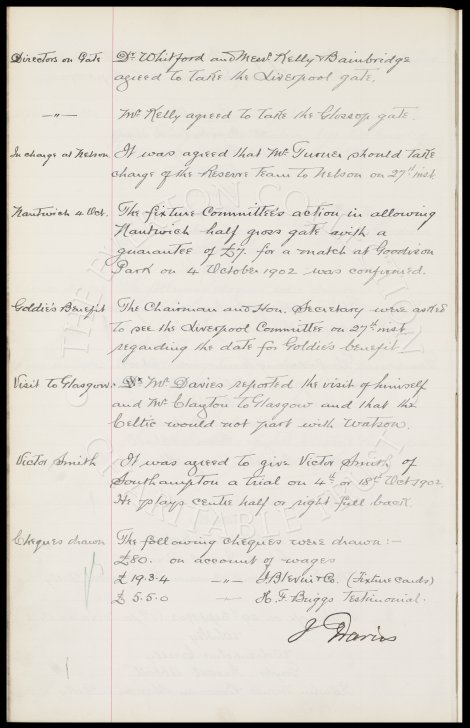 Directors on Gate Dr. Whitford and Messrs Kelly & Bainbridge
agreed to take the Liverpool gate.
—〃— Mr. Kelly agreed to take the Glossop gate.
In charge at Nelson It was agreed that Mr. Turner should take
charge of the Reserve Team to Nelson on 27th inst
Nantwich 4 Oct. The fixture Committee's action in allowing
Nantwich half gross gate with a
guarantee of £7. for a match at Goodison
Park on 4 October 1902 was confirmed.
Goldie's Benefit The Chairman and Hon. Secretary were asked
to see the Liverpool Committee on 27th inst
regarding the date for Goldie's benefit.
Visit to Glasgow. Mr. Davies reported the visit of himself
and Mr. Clayton to Glasgow and that the
Celtic would not part with Watson.
Victor Smith It was agreed to give Victor Smith of
Southampton a trial on 4th or 18th Oct 1902.
He plays centre half or right full back.
Cheques drawn The following cheques were drawn :-
£80. on account of wages
£19.3.4 —〃— & Co. (Fixture Cards)
£5.5.0 — H. F. Briggs Testimonial.
J Davies